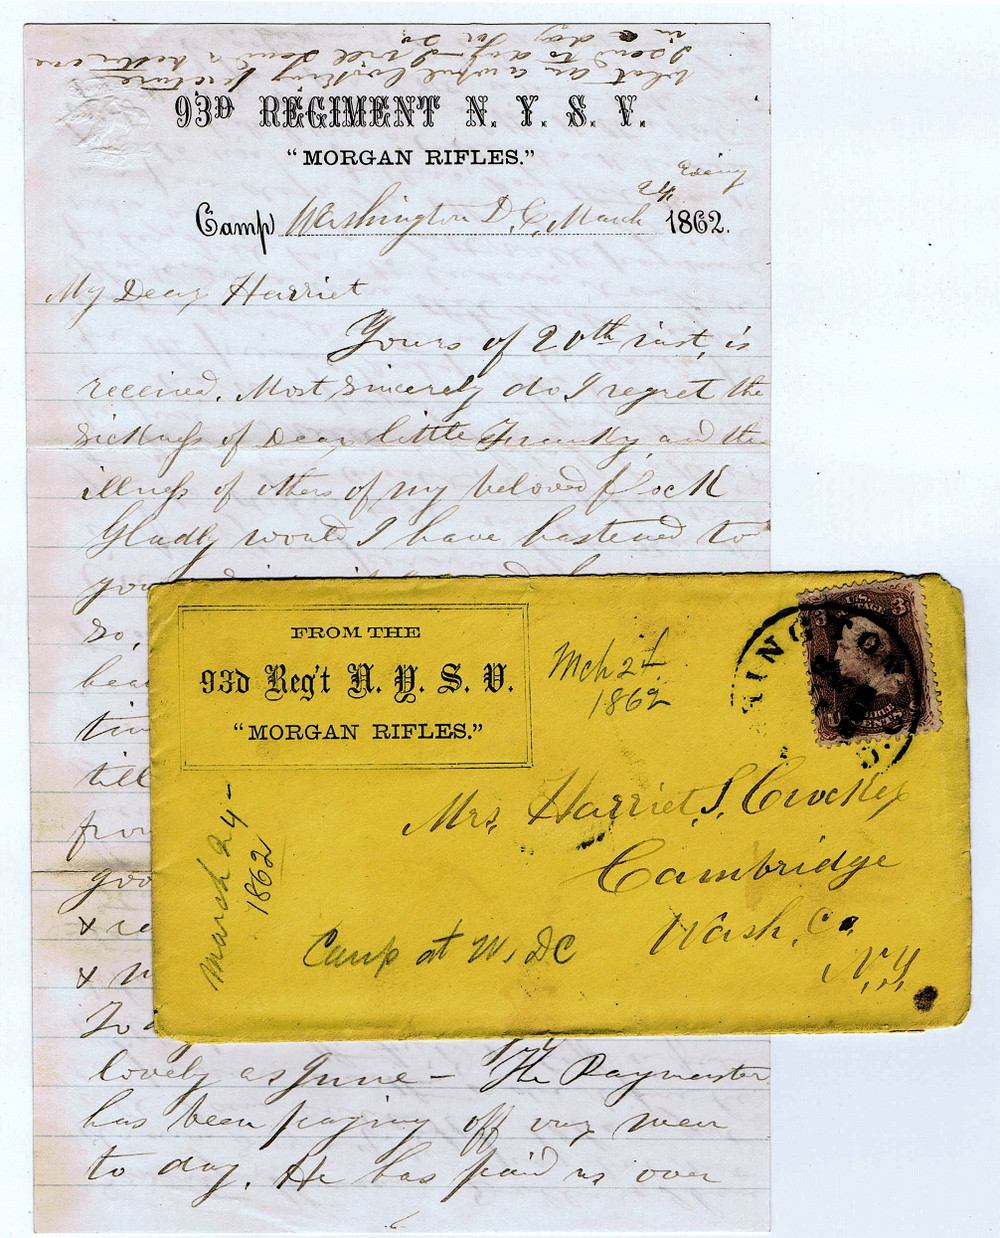 What an awful looking picture
I send to day — I will send a better one
in a day or so
93D REGIMENT N. Y. S. V.
"MORGAN RIFLES."
Evening
Camp Washington D.C. March 24 1862.
My Dear Harriet
Yours of 20th inst, is
received. Most sincerely do I regret the
sickness of Dear little Franky, and the
illness of others of my beloved flock
Gladly would I have hastened to
you
so,
bea
tim
till
from
goo
& re
& m
To d
lovely as June — The Paymaster
has been paying off our men
to day. He has paid us over
FROM THE
93d Reg't N. Y. S. V.
"MORGAN RIFLES."
Mch 24
1862
INGTON
D.C.
U.S. POSTAGE
3 3
THREE CENTS
Mrs. Harriet S. Crocker
Cambridge
Wash. Co.
N.Y.
March 24 –
1862
Camp at W. DC